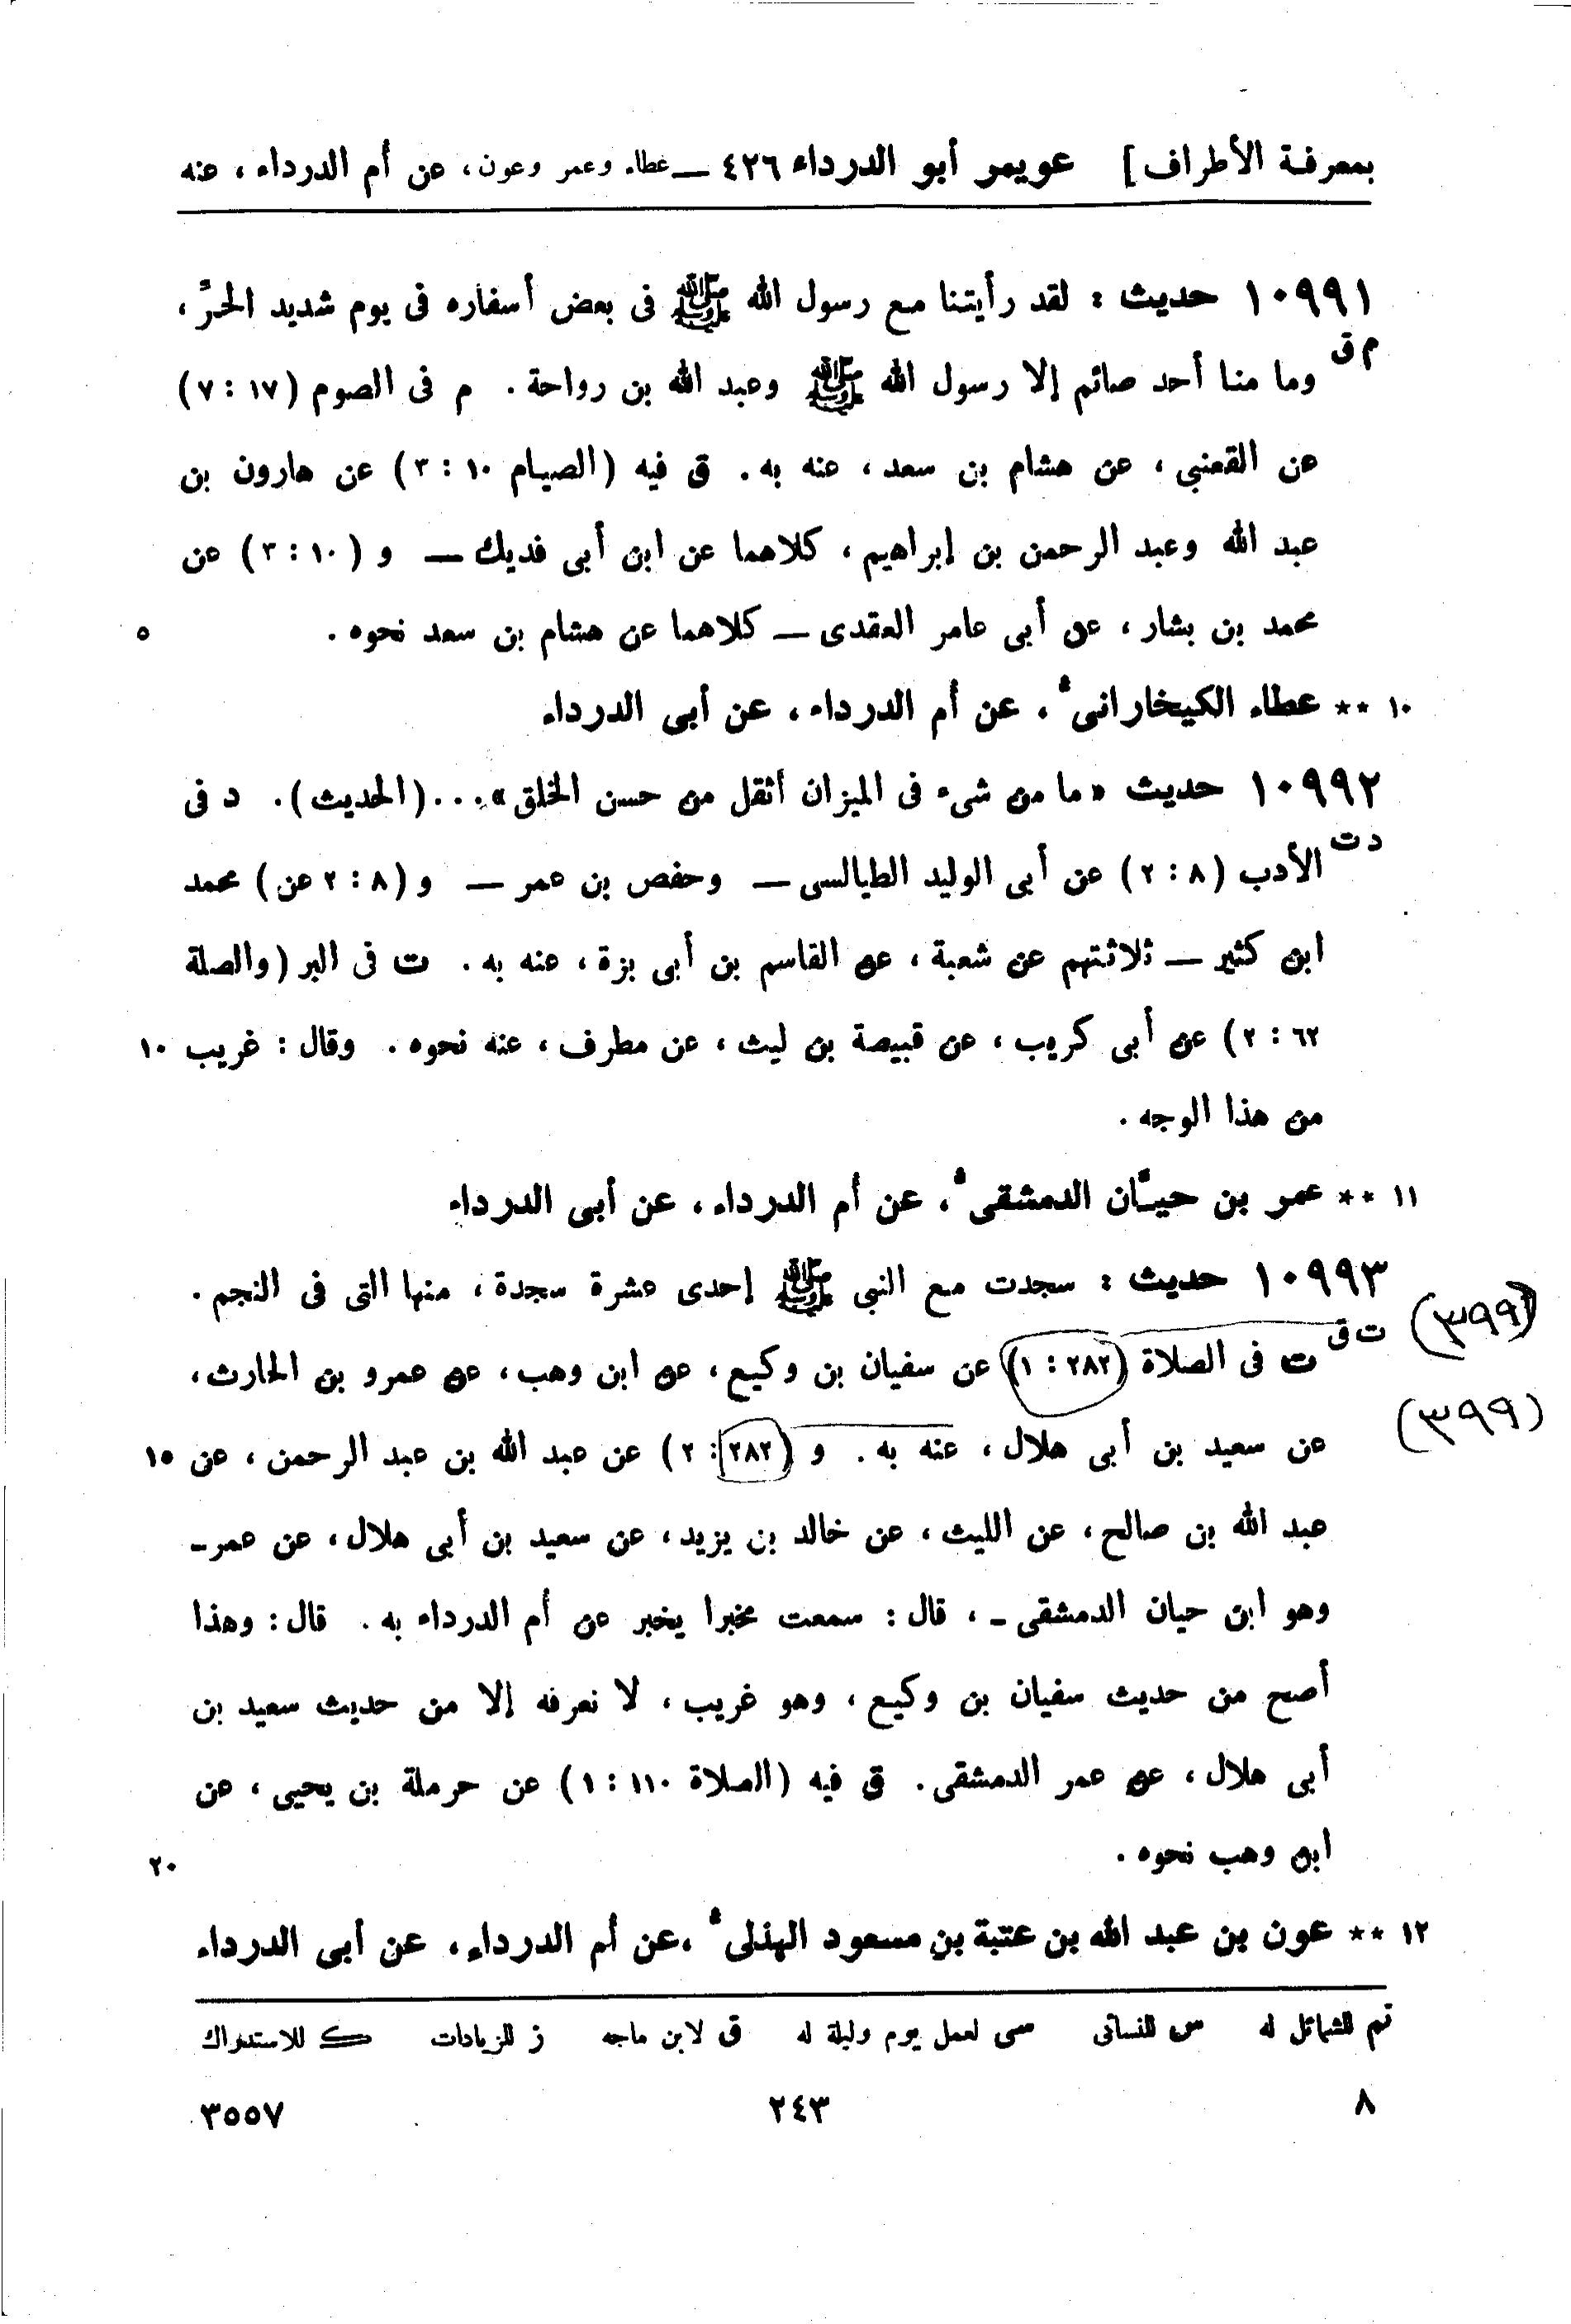 بمعرفة الأطراف] عويمر أبو الدرداء ٤٢٦ — عطاء وعمر وعون، عن أم الدرداء، عنه
١٠٩٩١ حديث : لقد رأيتنا مع رسول الله ﷺ فى بعض أسفاره فى يوم شديد الحرّ،
م ق
وما منا أحد صائم إلا رسول الله ﷺ وعبد الله بن رواحة. م فى الصوم (١٧ : ٧)
عن القعنبى، عن هشام بن سعد، عنه به. ق فيه (الصيام ١٠ : ٣) عن هارون بن
عبد الله وعبد الرحمن بن إبراهيم، كلاهما عن ابن أبى فديك — و (١٠ : ٣) عن
محمد بن بشار، عن أبى عامر العقدى — كلاهما عن هشام بن سعد نحوه. ٥
١٠ ** عطاء الكيخارانى، عن أم الدرداء، عن أبى الدرداء
١٠٩٩٢ حديث «ما من شىء فى الميزان أثقل من حسن الخلق»... (الحديث). د فى
د ت
الأدب (٨ : ٢) عن أبى الوليد الطيالسى — وحفص بن عمر — و (٨ : ٢ عن) محمد
ابن كثير — ثلاثتهم عن شعبة، عن القاسم بن أبى بزة، عنه به. ت فى البر (والصلة
٦٢ : ٢) عن أبى كريب، عن قبيصة بن ليث، عن مطرف، عنه نحوه. وقال : غريب ١٠
من هذا الوجه.
١١ ** عمر بن حيّان الدمشقى، عن أم الدرداء، عن أبى الدرداء
١٠٩٩٣ حديث : سجدت مع النبى ﷺ إحدى عشرة سجدة، منها التى فى النجم.
ت ق (٣٩٩)
ت فى الصلاة (٢٨٢ : ١) عن سفيان بن وكيع، عن ابن وهب، عن عمرو بن الحارث،
(٣٩٩)
عن سعيد بن أبى هلال، عنه به. و (٢٨٢ : ٢) عن عبد الله بن عبد الرحمن، عن ١٥
عبد الله بن صالح، عن الليث، عن خالد بن يزيد، عن سعيد بن أبى هلال، عن عمر -
وهو ابن حيان الدمشقى -، قال : سمعت مخبرا يخبر عن أم الدرداء به. قال : وهذا
أصح من حديث سفيان بن وكيع، وهو غريب، لا نعرفه إلا من حديث سعيد بن
أبى هلال، عن عمر الدمشقى. ق فيه (الصلاة ١١٠ : ١) عن حرملة بن يحيى، عن
ابن وهب نحوه. ٢٠
١٢ ** عون بن عبد الله بن عتبة بن مسعود الهذلى، عن أم الدرداء، عن أبى الدرداء
تم للشمائل له س للنسائى سى لعمل يوم وليلة له ق لابن ماجه ز للزيادات ك للاستدراك
٨ ٢٤٣ ٣٥٥٧